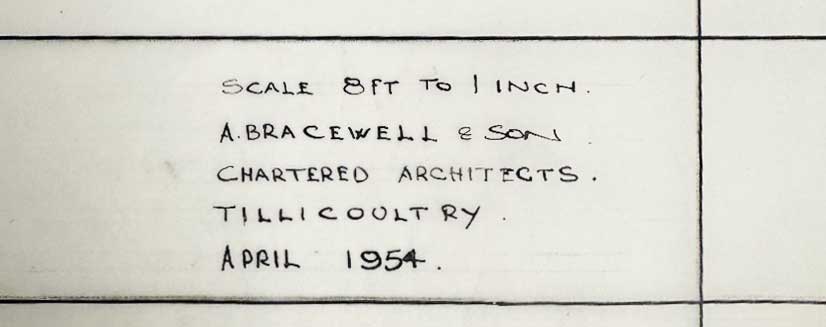 SCALE 8FT TO 1 INCH.
A. BRACEWELL & SON
CHARTERED ARCHITECTS.
TILLICOULTRY.
APRIL 1954.